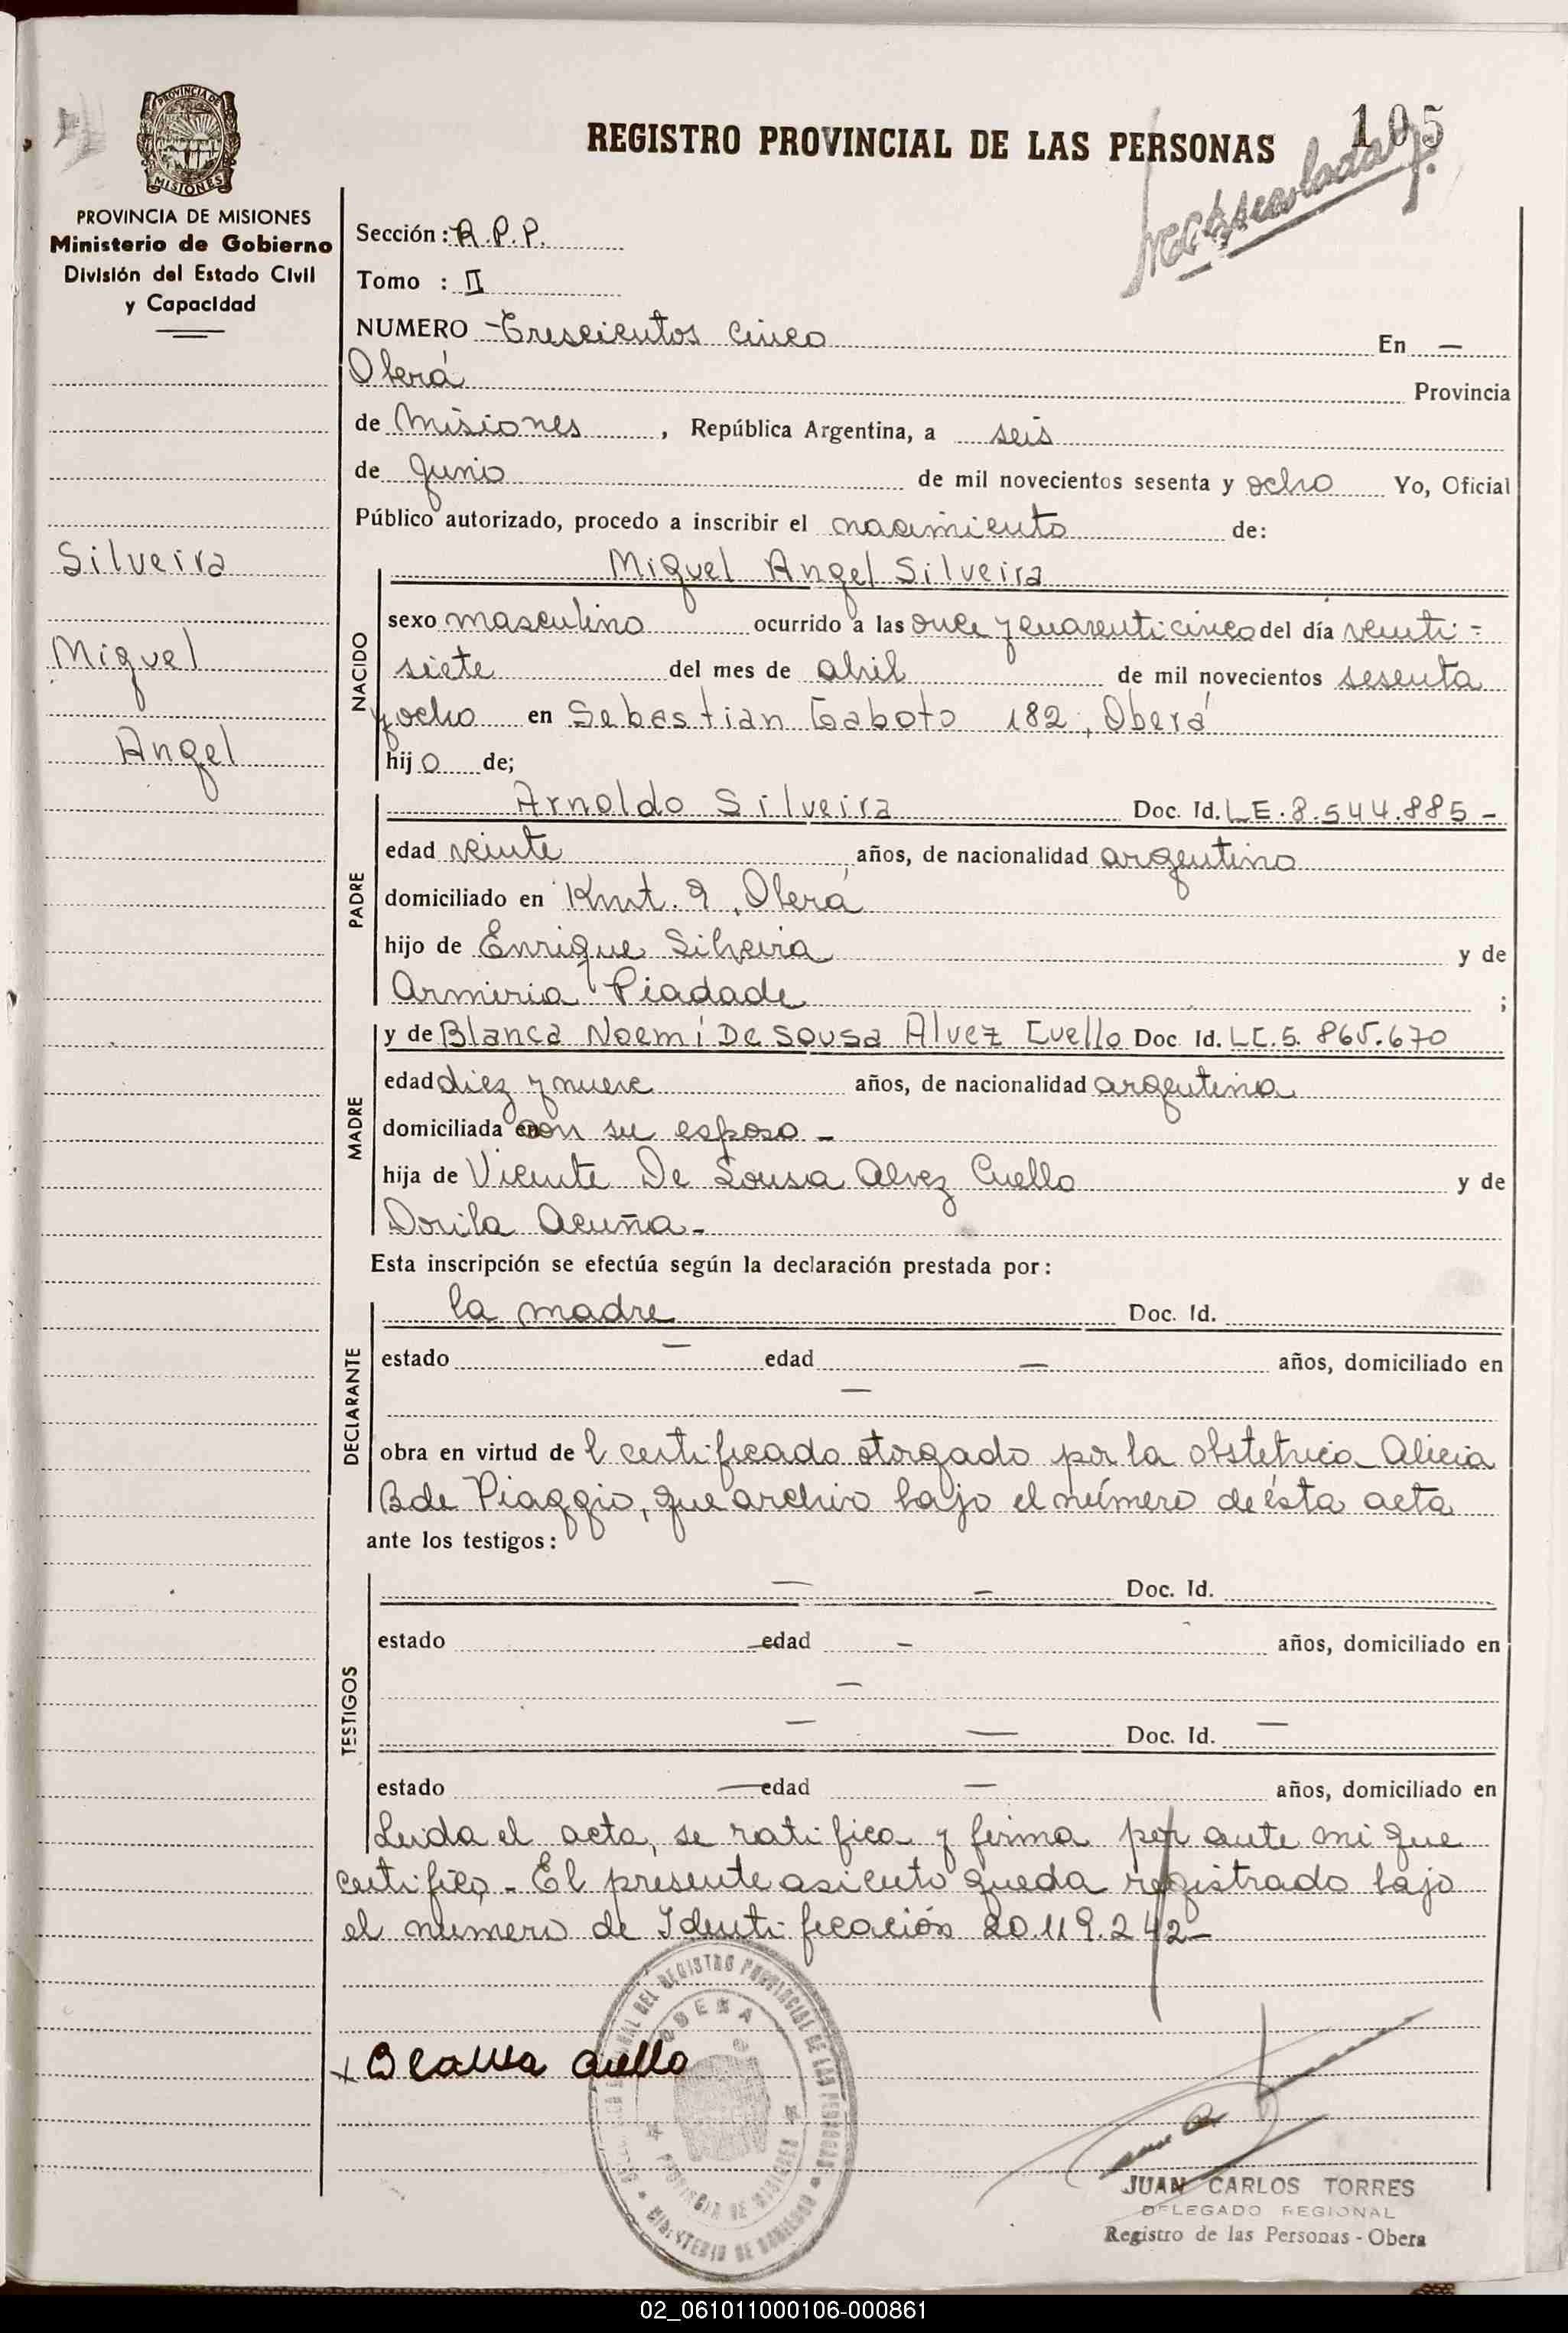 PROVINCIA DE
MISIONES
PROVINCIA DE MISIONES
Ministerio de Gobierno
División del Estado Civil
y Capacidad
Silveira
Miguel
Angel
REGISTRO PROVINCIAL DE LAS PERSONAS
105
Sección: R.P.P.
Tomo : II
NUMERO - Trescientos cinco En —
Oberá Provincia
de Misiones , República Argentina, a seis
de Junio de mil novecientos sesenta y ocho Yo, Oficial
Público autorizado, procedo a inscribir el nacimiento de:
NACIDO
Miguel Angel Silveira
sexo masculino ocurrido a las once y cuarenticinco del día veinti-
siete del mes de abril de mil novecientos sesenta
y ocho en Sebastian Gaboto 182, Oberá
hijo de;
PADRE
Arnoldo Silveira Doc. Id. L.E. 8.544.885 -
edad veinte años, de nacionalidad argentino
domiciliado en Kmt. 9, Oberá
hijo de Enrique Silveira y de
Armiria Piadade ;
MADRE
y de Blanca Noemí De Sousa Alvez Cuello Doc. Id. L.C. 5.865.670
edad diez y nueve años, de nacionalidad argentina
domiciliada en con su esposo -
hija de Vicente De Sousa Alvez Cuello y de
Dorila Acuña -
Esta inscripción se efectúa según la declaración prestada por:
DECLARANTE
la madre Doc. Id.
estado — edad — años, domiciliado en
—
obra en virtud del certificado otorgado por la obstetrica Alicia
B de Piaggio, que archivo bajo el número de ésta acta
ante los testigos:
TESTIGOS
— — Doc. Id.
estado — edad — años, domiciliado en
—
— — Doc. Id. —
estado — edad — años, domiciliado en
Leida el acta, se ratifica y firma por ante mi que
certifico - El presente asiento queda registrado bajo
el número de Identificación 20.119.242-
x Blanca Cuello
DEL REGISTRO PROVINCIAL DE LAS PERSONAS
OBERA
PROVINCIA DE MISIONES
MINISTERIO DE GOBIERNO
JUAN CARLOS TORRES
DELEGADO REGIONAL
Registro de las Personas - Obera
02_061011000106-000861